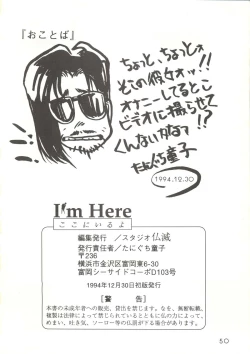 『おことば』
ちょっと、ちょっとォ
そこの彼女オッ!!
オナニーしてるとこ
ビデオに撮らせて
くんないかなァ!!
たにぐち童子
1994.12.30
I'm Here
ここにいるよ
編集発行 /スタジオ仏滅
発行責任者/たにぐち童子
〒236
横浜市金沢区富岡東6-30
富岡シーサイドコーポD103号
1994年12月30日初版発行
【警 告】
本書の未成年者への販売、貸出を禁じます。なを、無断転載、
複製は法律によって禁じられているとともに仏の力によって、
めまい、吐き気、ソーロー等の仏罰が下る場合があります。
50